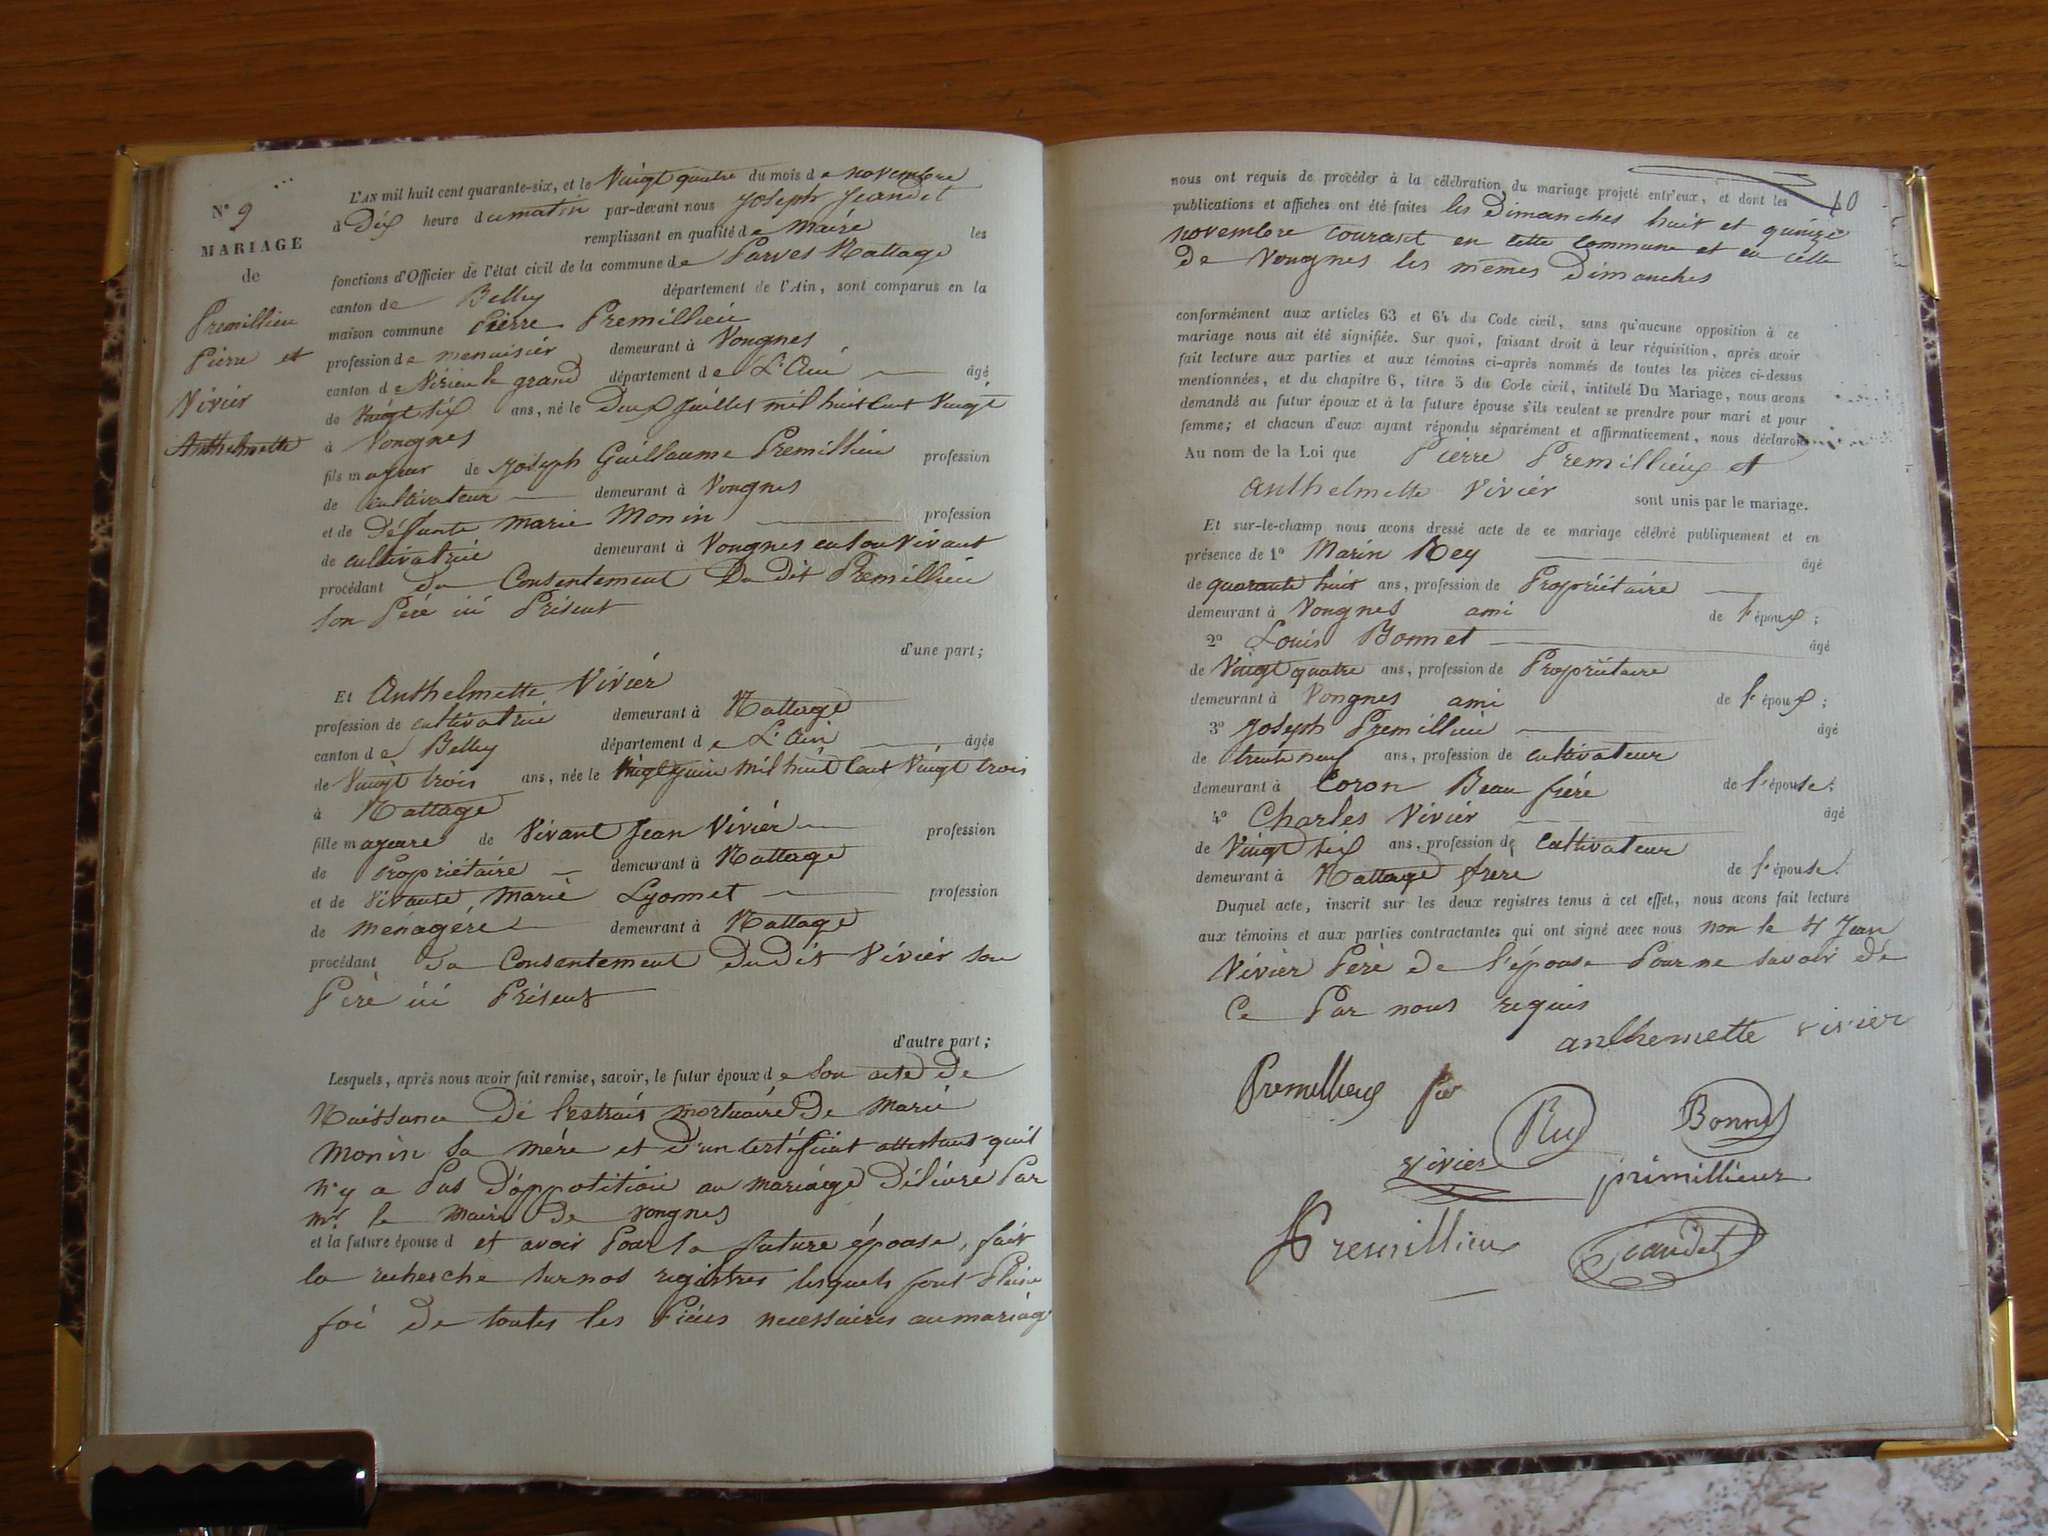 N° 9
MARIAGE
de
Premillieu
Pierre et
Vivier
Anthelmette
L'AN mil huit cent quarante-six, et le Vingt quatre du mois de novembre
à Dix heure du matin par-devant nous Joseph Jeandet
remplissant en qualité de Maire les
fonctions d'Officier de l'état civil de la commune de Parves Nattage
canton de Belley département de l'Ain, sont comparus en la
maison commune Pierre Premillieu
profession de menuisier demeurant à Vongnes
canton de Virieu le grand département de L'Ain âgé
de vingt six ans, né le Deux Juillet mil huit Cent Vingt
à Vongnes
fils majeur de Joseph Guillaume Premillieu profession
de cultivateur demeurant à Vongnes
et de Défunte Marie Monin profession
de cultivatrice demeurant à Vongnes en son Vivant
procédant du Consentement Du dit Premillieu
son Père ici Présent
d'une part;
Et Anthelmette Vivier
profession de cultivatrice demeurant à Nattage
canton de Belley département de L'Ain âgée
de Vingt trois ans, née le Juin Mil huit Cent Vingt trois
à Nattage
fille majeure de Vivant Jean Vivier profession
de Propriétaire demeurant à Nattage
et de Vivante Marie Lyonnet profession
de ménagére demeurant à Nattage
procédant du Consentement Dudit Vivier son
Père ici Présent
d'autre part;
Lesquels, après nous avoir fait remise, savoir, le futur époux de son acte de
Naissance De l'extrait mortuaire De Marie
Monin sa mére et d'un Certificat attestant qu'il
n'y a Pas D'oppotition au mariage Délivré Par
mr le Maire De Vongnes
et la future épouse d et avoir Pour la future épouse, fait
la recherche sur nos registres lesquels font Pleine
foi de toutes les Pièces necessaires au mariage
10
nous ont requis de procéder à la célébration du mariage projeté entr'eux, et dont les
publications et affiches ont été faites les Dimanches huit et quinze
novembre courant en cette commune et en celle
De Vongnes les mêmes Dimanches
conformément aux articles 63 et 64 du Code civil, sans qu'aucune opposition à ce
mariage nous ait été signifiée. Sur quoi, faisant droit à leur réquisition, après avoir
fait lecture aux parties et aux témoins ci-après nommés de toutes les pièces ci-dessus
mentionnées, et du chapitre 6, titre 5 du Code civil, intitulé Du Mariage, nous avons
demandé au futur époux et à la future épouse s'ils veulent se prendre pour mari et pour
femme; et chacun d'eux ayant répondu séparément et affirmativement, nous déclarons
Au nom de la Loi que Pierre Premillieux et
Anthelmette Vivier sont unis par le mariage.
Et sur-le-champ nous avons dressé acte de ce mariage célébré publiquement et en
présence de 1° Marin Rey âgé
de quarante huit ans, profession de Propriétaire
demeurant à Vongnes ami de l'époux;
2° Louis Bonnet âgé
de Vingt quatre ans, profession de Propriétaire
demeurant à Vongnes ami de l'époux;
3° Joseph Premillieu âgé
de trente neuf ans, profession de cultivateur
demeurant à Coron Beau frére de l'épouse;
4° Charles Vivier âgé
de Vingt six ans, profession de Cultivateur
demeurant à Nattage frère de l'épouse.
Duquel acte, inscrit sur les deux registres tenus à cet effet, nous avons fait lecture
aux témoins et aux parties contractantes qui ont signé avec nous non le Jean
Vivier Père De l'épouse Pour ne savoir de
Ce Par nous requis
anthemette vivier
Premillieux
Rey Bonnet
vivier primillieux
Premillieu Jeandet